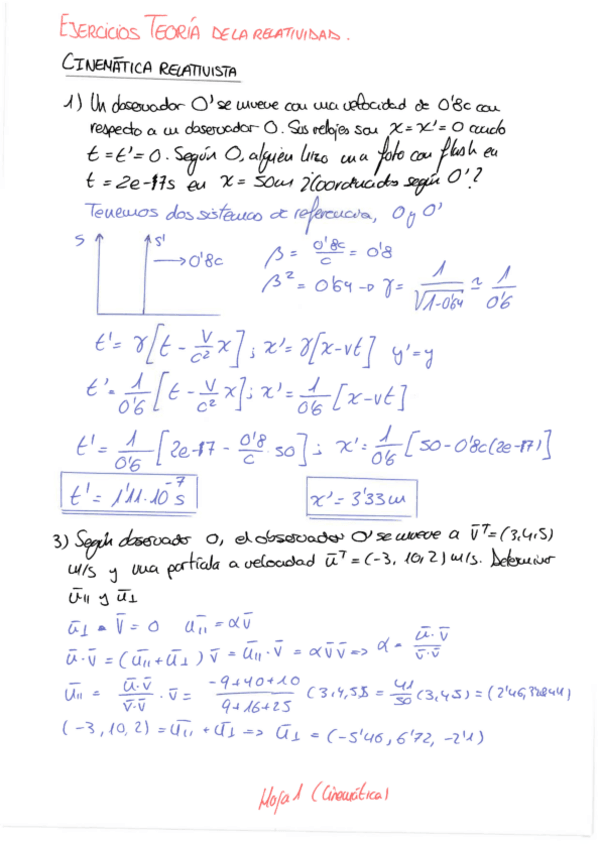 EJERCICIOS TEORÍA DE LA RELATIVIDAD.
CINEMÁTICA RELATIVISTA
1) Un observador O' se mueve con una velocidad de 0'8c con
respecto a un observador O. Sus relojes son x = x' = 0 cuando
t = t' = 0. Según O, alguien hizo una foto con flash en
t = 2e-17s en x = 50m ¿Coordenadas según O'?
Tenemos dos sistemas de referencia, O y O'
S S' → 0'8c
β = 0'8c/c = 0'8
β² = 0'64 → γ = 1/√(1-0'64) ≃ 1/0'6
t' = γ[t - v/c² x] ; x' = γ[x - vt] y' = y
t' = 1/0'6 [t - v/c² x] ; x' = 1/0'6 [x - vt]
t' = 1/0'6 [2e-17 - 0'8/c · 50] ; x' = 1/0'6 [50 - 0'8c(2e-17)]
t' = 1'11·10⁻⁷ s
x' = 3'33 m
3) Según observador O, el observador O' se mueve a v̄ᵀ = (3,4,5)
m/s y una partícula a velocidad ūᵀ = (-3, 10, 2) m/s. Determinar
ū∥ y ū⊥
ū⊥ · v̄ = 0 ū∥ = αv̄
ū·v̄ = (ū∥ + ū⊥) v̄ = ū∥·v̄ = αv̄v̄ => α = ū·v̄/v̄·v̄
ū∥ = ū·v̄/v̄·v̄ · v̄ = -9+40+10/9+16+25 (3,4,5) = 41/50 (3,4,5) = (2'46,
(-3, 10, 2) = ū∥ + ū⊥ => ū⊥ = (-5'46, 6'72, -2'1)
Hoja 1 (Cinemática)